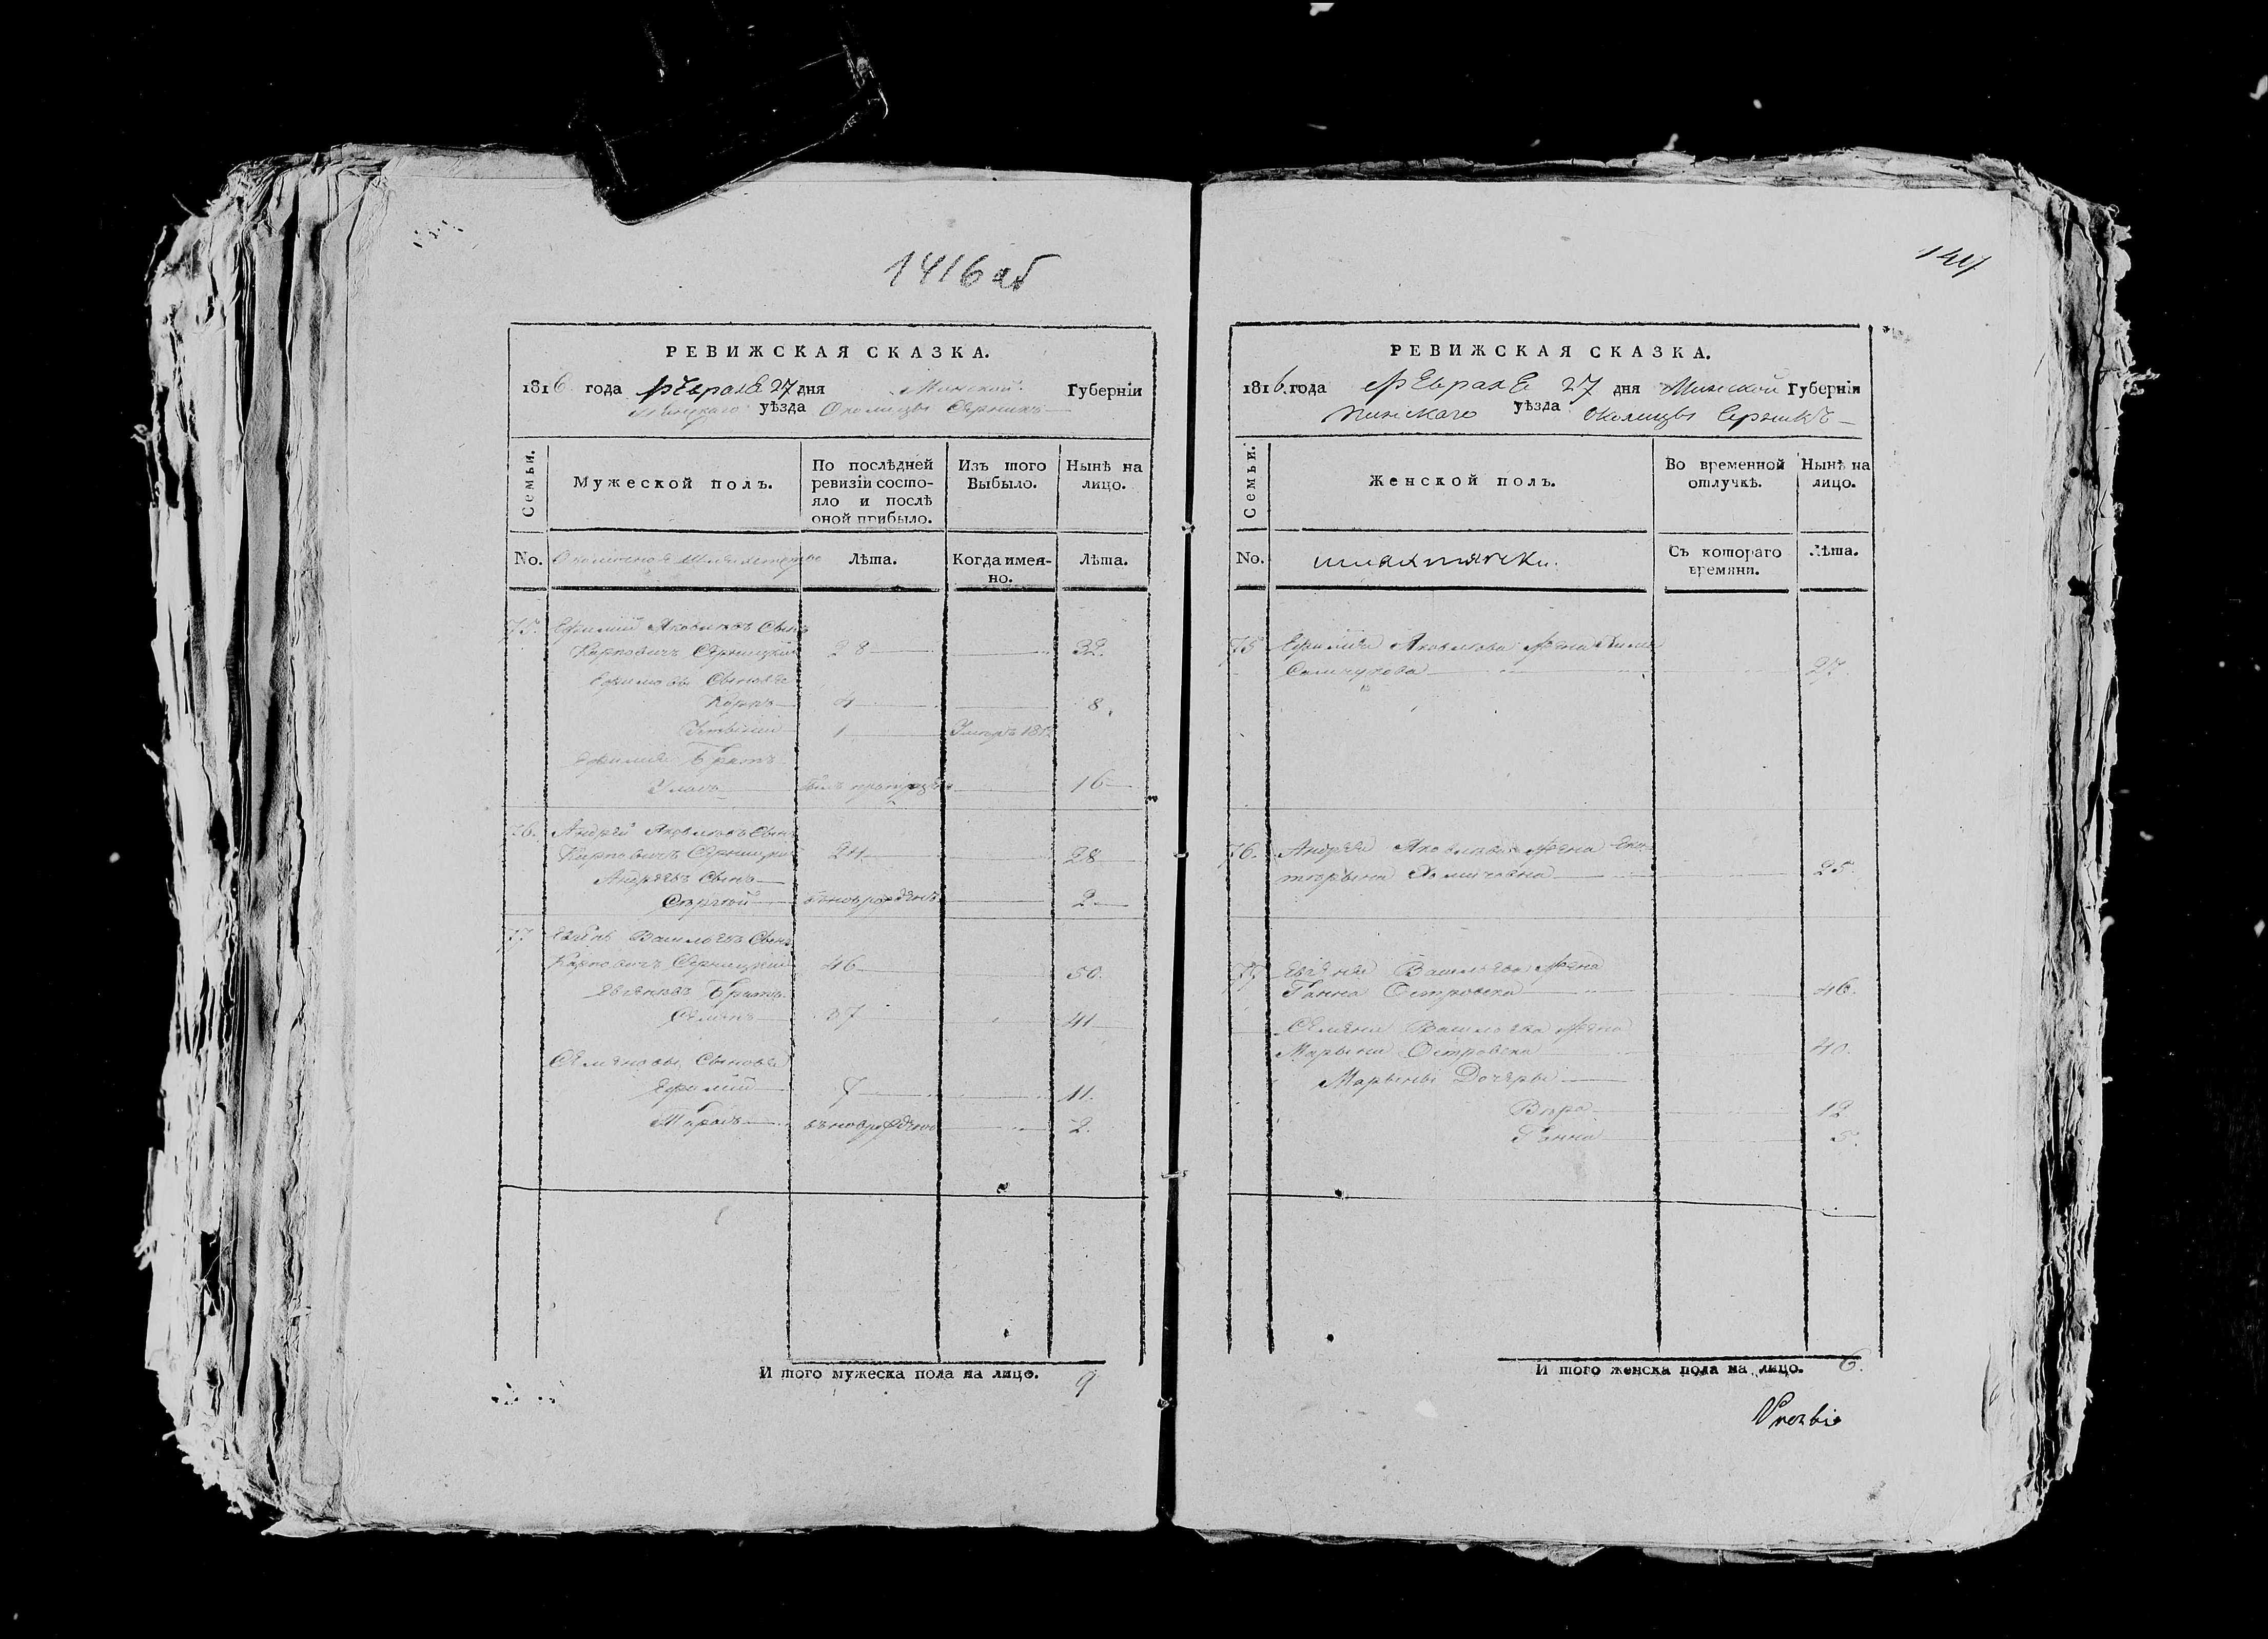 1416 об
РЕВИЖСКАЯ СКАЗКА.
1816 года Февраля 27 дня Минской Губерніи
Пинскаго уѣзда Околицы Серникъ
Семьи.
Мужеской полъ.
По послѣдней ревизіи состояло и послѣ оной прибыло.
Изъ того Выбыло.
Нынѣ на лицо.
No.
Лѣта.
Когда именно.
Лѣта.
75. Ефимій Яковлевъ Сынъ
Карповичъ Серницкій 28 32.
Ефимовы Сыновья
Карпъ 4 8.
1 Умеръ 181
Ефимія Братъ
Уласъ былъ 16
76. Андрей Яковлевъ Сынъ
Карповичъ Серницкій 24 28
Андреевъ Сынъ
Сергей вновьрожденъ 2
77 Вашльевъ Сынъ
Карповичъ Серницкій 46 50.
Братъ
Семенъ 37 41
Семеновы Сыновья
Ефимій 7 11.
вновьрожденъ 2.
И того мужеска пола на лицо. 9
144
РЕВИЖСКАЯ СКАЗКА.
1816. года Февраля 27 дня Минской Губерніи
Пинскаго уѣзда Околицы Серникъ
Семьи.
Женской полъ.
Во временной отлучкѣ.
Нынѣ на лицо.
No.
шляхтячки.
Съ котораго времяни.
Лѣта.
75 Ефимія Яковлева Жена
27.
76. Андрея Яковлева Жена Ека-
терына 25.
77 Вашльева Жена
Ганна Островска 46.
Семена Вашльева Жена
Марына Островска 40.
Марыны Дочеры
Вера 12
Ганна 5.
И того женска пола на лицо. 6.